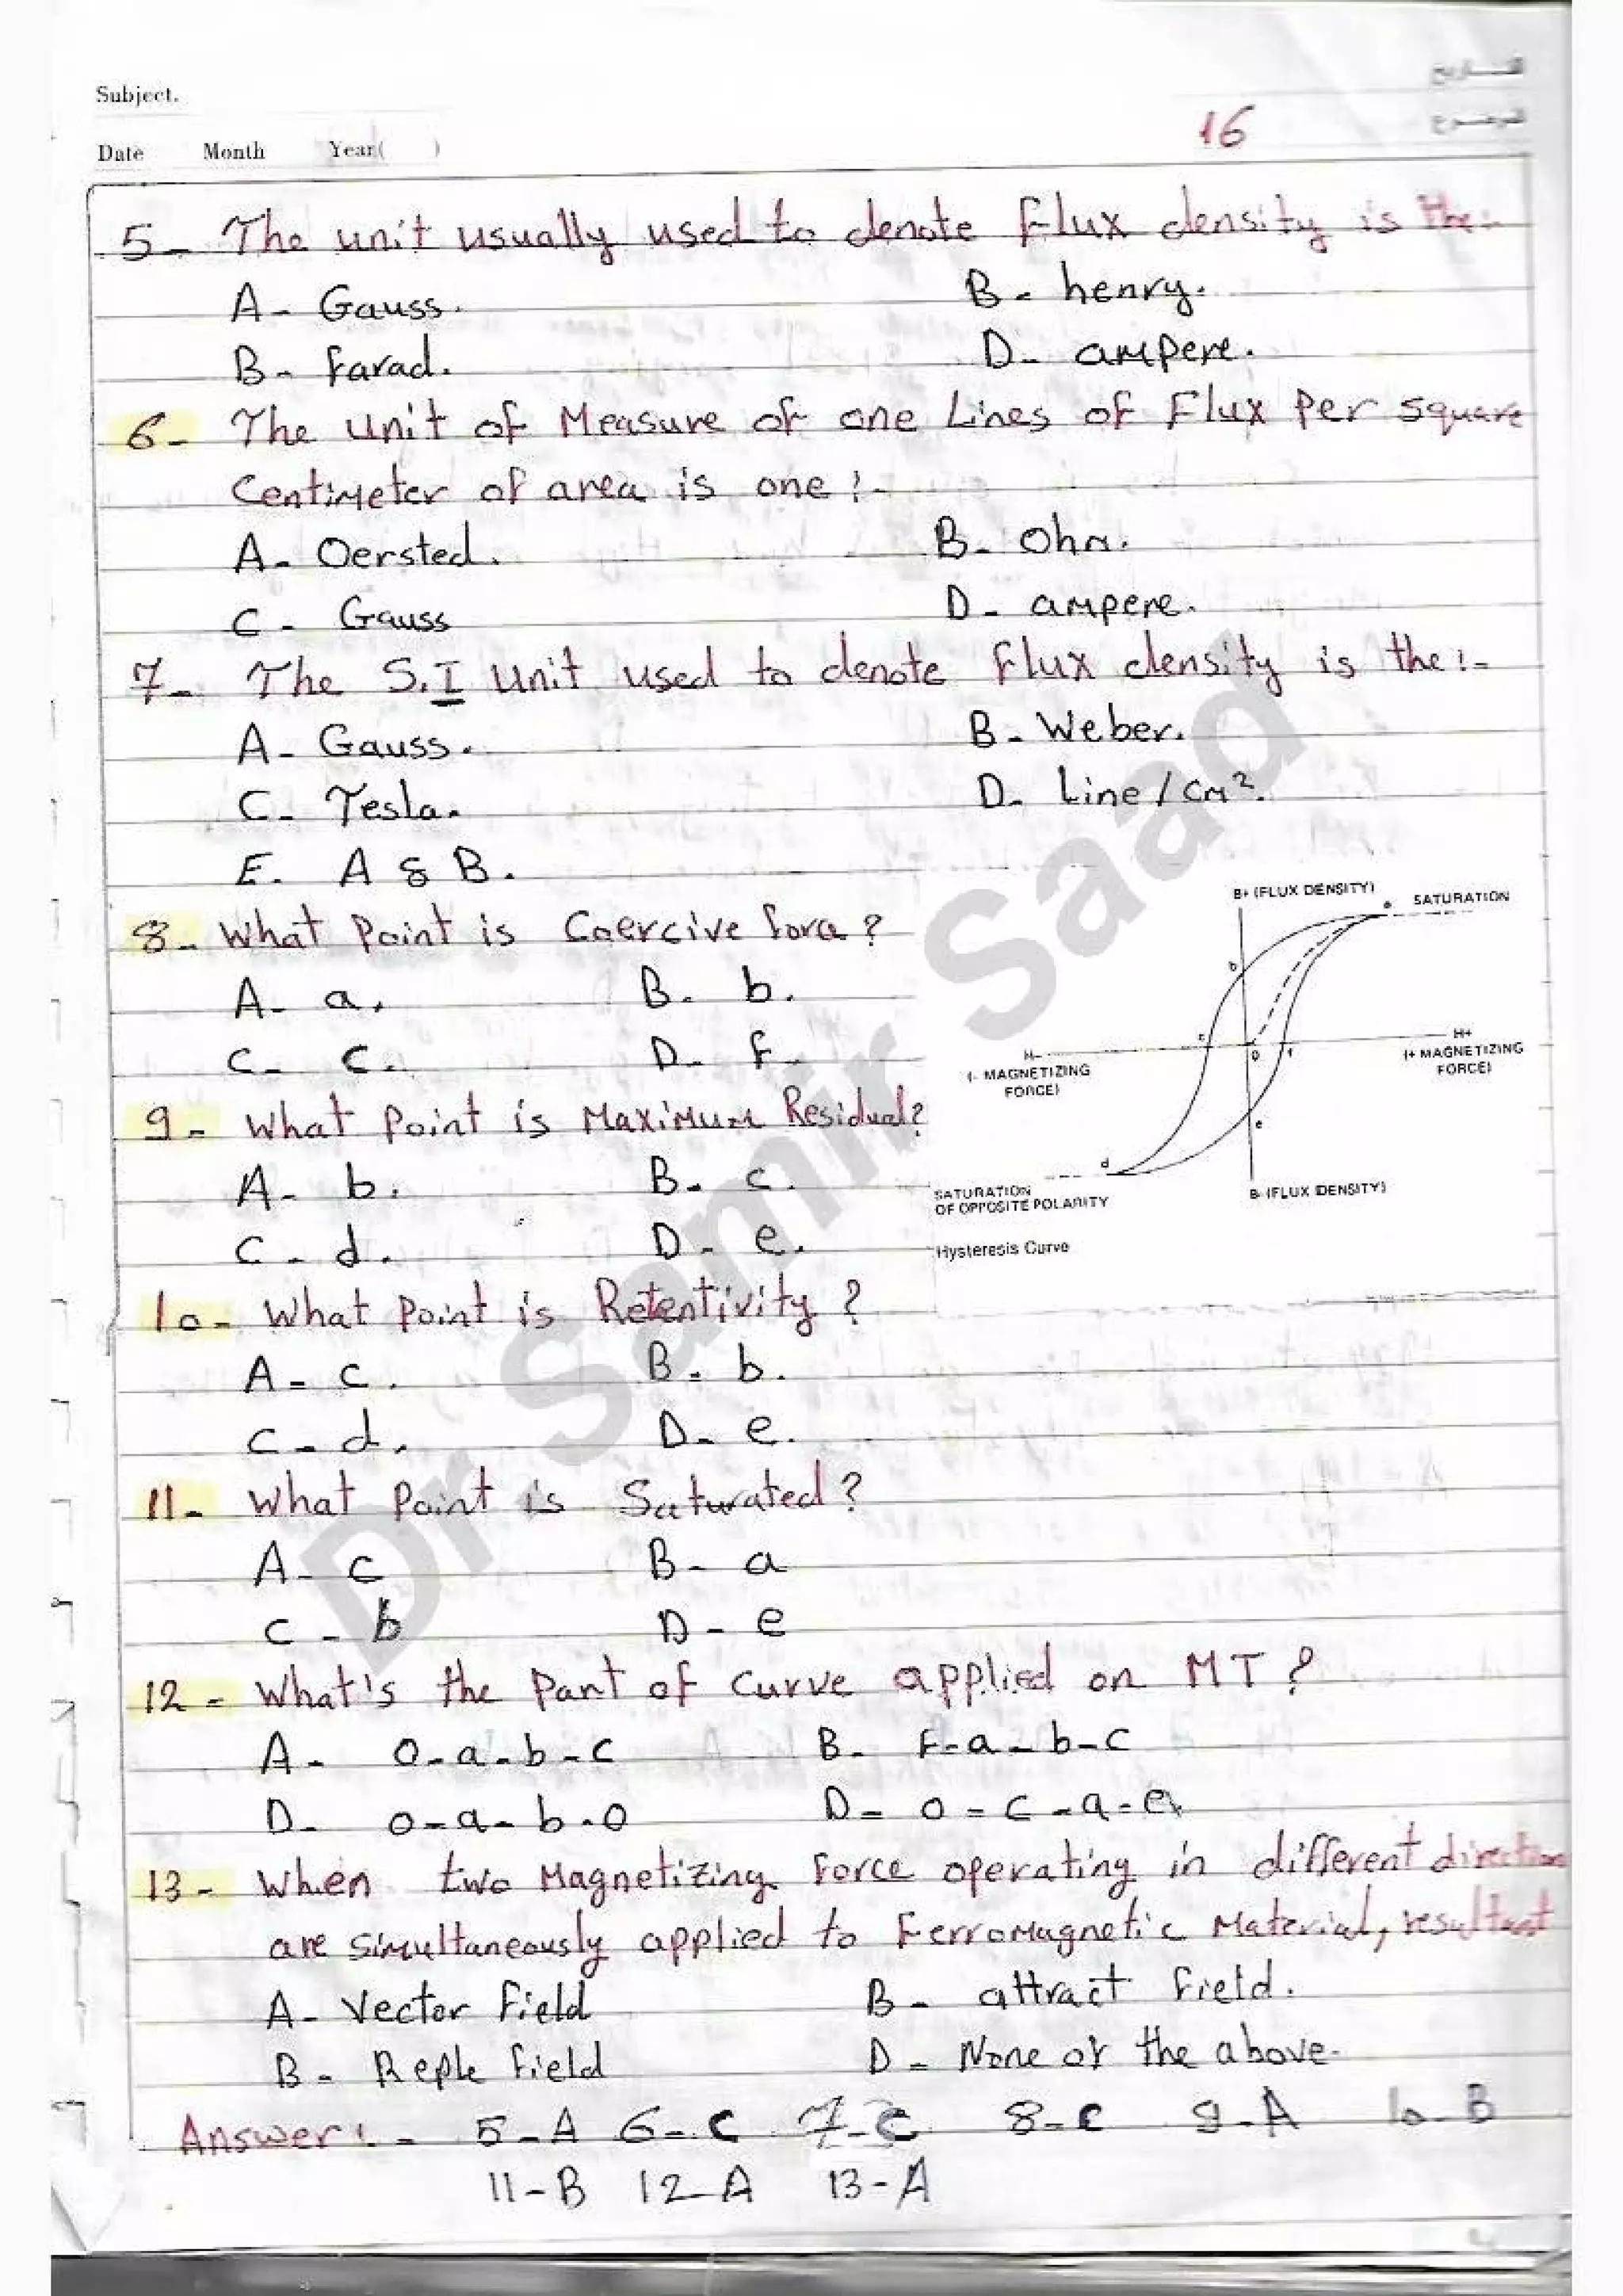 Subject.
التاريخ
Date Month Year( )
16
الموضوع
5- The unit usually used to denote flux density is the:-
A- Gauss. B- henry.
B- farad. D- ampere.
6- The unit of Measure of one Lines of Flux Per square
Centimeter of area is one :-
A- Oersted. B- Ohm.
C- Gauss D- ampere.
7- The S.I unit used to denote flux density is the :-
A- Gauss. B- Weber.
C- Tesla. D- Line/cm².
E. A & B.
8- What Point is Coercive force?
A- a. B. b.
C- c. D- f.
B+ (FLUX DENSITY)
a SATURATION
b
c
H-
(- MAGNETIZING
FORCE)
0
f
H+
(+ MAGNETIZING
FORCE)
e
d
SATURATION
OF OPPOSITE POLARITY
B- (FLUX DENSITY)
Hysteresis Curve
9- What Point is Maximum Residual?
A- b. B- c.
C- d. D- e.
10- What Point is Retentivity?
A- c. B. b.
C- d. D- e.
11- What Point is Saturated?
A- c B- a
C- b D- e
12- What's the Part of curve applied on MT?
A- o-a-b-c B- F-a-b-c
D- o-a-b-o D- o-c-a-e
13- When two Magnetizing Force operating in different direction
are simultaneously applied to Ferromagnetic Material, resultant
A- Vector Field B- attract Field.
B- Reple field D- None of the above.
Answer:- 5-A 6-C 7-C 8-C 9-A 10-B
11-B 12-A 13-A
Dr Samir Saad